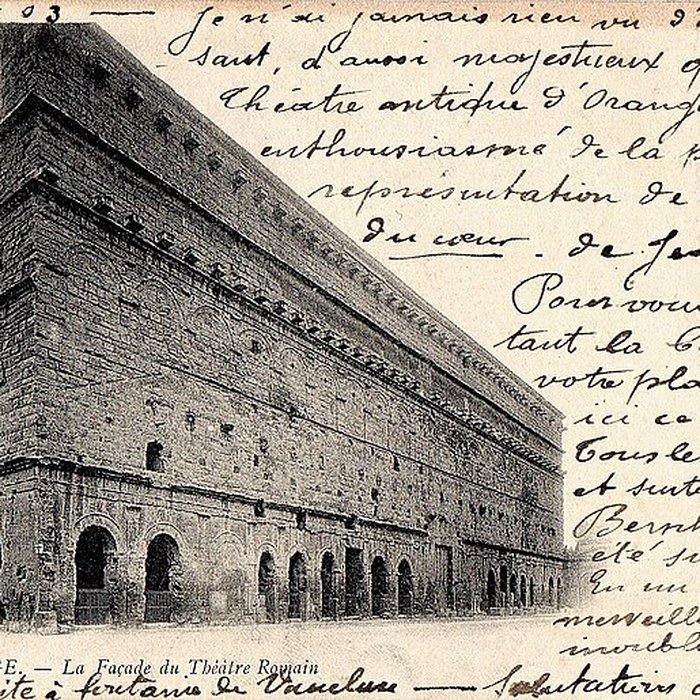 03 —
Je n'ai jamais rien vu d'
sant, d'aussi majestueux q
Théâtre antique d'Orang
enthousiasmé de la p
représentation de
du cœur. de Je
Pour vou
tant la C
votre pla
ici ce
Tous le
et surto
Bern
été su
En un
merveille
inoubl
GE. — La Façade du Théâtre Romain
ite à fontaine de Vaucluse — Salutations